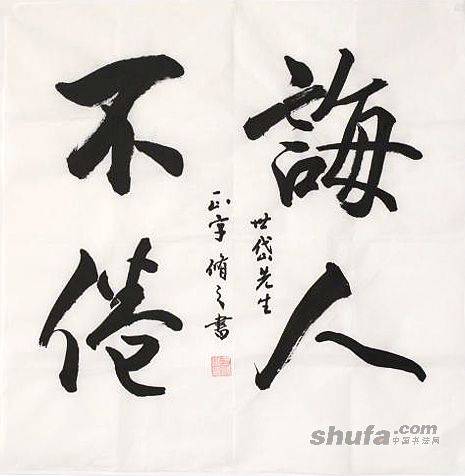 誨人
不倦
世岱先生
正字脩之書
shufa.com
中国书法网